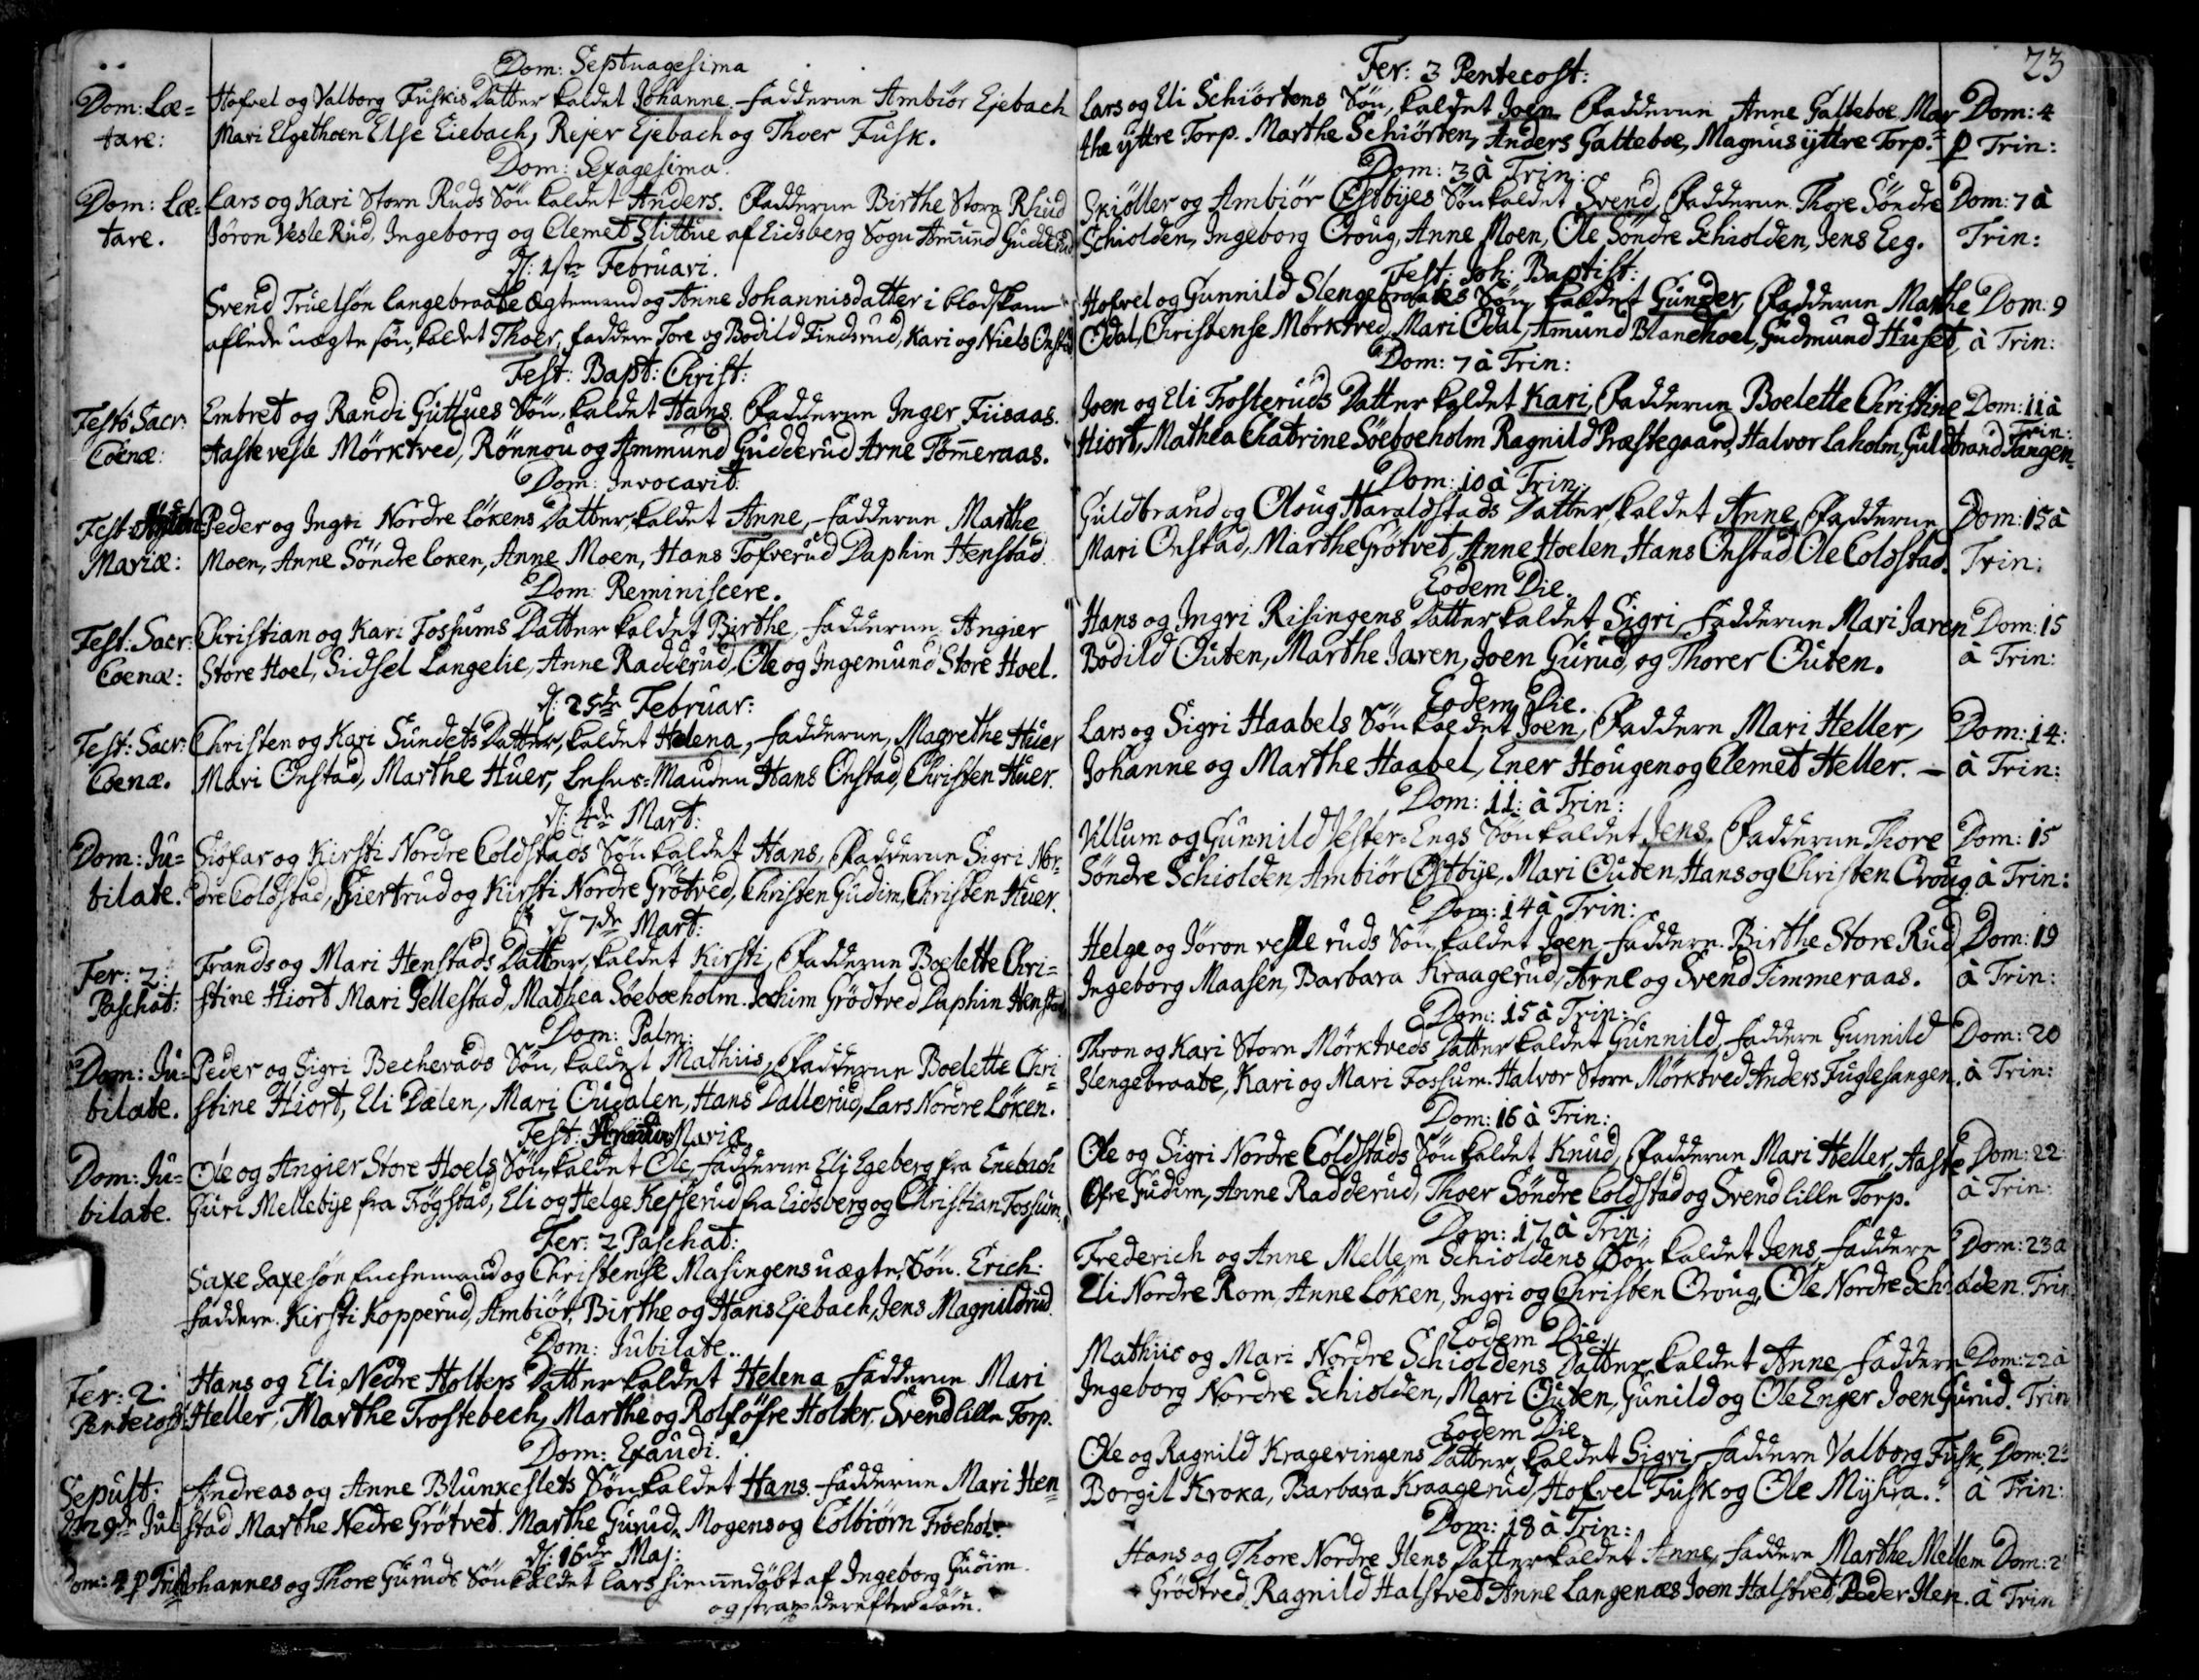 Dom: Septuagesima
Dom: Læ= Hofvel og Valborg Fuskis Datter kaldet Johanne. Fadderne Ambiør Ejebach
tare: Mari Elgethoen Else Eiebach, Rejer Ejebach og Thoer Fusk.
Dom: Sexagesima.
Dom: Læ= Lars og Kari Store Ruds Søn kaldet Anders. Fadderne Birthe Store Rhud
tare. Jøron Vesle Rud, Ingeborg og Clemet Slittue af Eidsberg Sogn Amund Gudderud
d: 1ste Februari.
Svend Truelsøn Langebraate Ægtemand og Anne Johannisdatter i blodskam
aflede uægte søn, kaldet Thoer, faddere Tore og Bodild Findsrud, Kari og Niels Onstad
Fest: Bapt: Christ:
Festo Sacr: Embret og Randi Guttues Søn, kaldet Hans. Fadderne Inger Fiisaas.
Coenæ: Aaste vesle Mörktved, Rönnou og Ammund Gudderud Arne Tömeraas.
Dom: Invocavit:
Fest: Peder og Ingri Nordre Lökens Datter, kaldet Anne, Fadderne Marthe
Mariæ: Moen, Anne Söndre Loken, Anne Moen, Hans Tofverud Daphin Henstad.
Dom: Reminiscere.
Fest: Sacr: Christian og Kari Fossums Datter kaldet Birthe, Fadderne Angier
Coenæ: Store Hoel, Sidsel Langelie, Anne Radderud, Ole og Ingemund Store Hoel.
d: 25de Februar:
Fest: Sacr: Christen og Kari Sundets Datter, kaldet Helena, Fadderne, Magrethe Huer
Coenæ. Mari Onstad, Marthe Huer, Lehns=Manden Hans Onstad, Christen Huer.
d: 4de Mart:
Dom: Ju= Siöfar og Kirsti Nordre Coldstads Søn kaldet Hans, Fadderne Sigri Nor=
bilate. dre Coldstad, Giertrud og Kirsti Nordre Grötved, Christen Gudim, Christen Huer.
d 7de Mart:
Fer: 2: Frands og Mari Henstads Datter, kaldet Kirsti, Fadderne Boelette Chri=
Paschat: stine Hiort Mari Tellestad, Mathea Söeboeholm. Jochim Grödtved Daphin Henstad
Dom: Palm:
Dom: Ju= Peder og Sigri Becheruds Søn, kaldet Mathiis, Fadderne Boelette Chri=
bilate. stine Hiort, Eli Dælen, Mari Oudalen, Hans Dallerud, Lars Nordre Löken.
Fest: Mariæ
Dom: Ju= Ole og Angier Store Hoels Søn, kaldet Ole, Fadderne Eli Egeberg fra Enebach
bilate. Guri Mellebye fra Trögstad, Eli og Helge Kesserud fra Eidsberg og Christian Fossum.
Fer: 2 Paschat:
Saxe Saxesøn Enchemand og Christense Masingens uægte Søn. Erich:
Faddere. Kirsti Kopperud, Ambiör, Birthe og Hans Ejebach, Jens Magnildrud.
Dom: Jubilate..
Fer: 2. Hans og Eli Nedre Holters Datter kaldet Helena Fadderne Mari
Pentecost: Heller, Marthe Trostebech, Marthe og Rolf öfre Holter, Svend lille Torp.
Dom: Exaudi.
Sepult: Andreas og Anne Blunkeslets Søn kaldet Hans. Fadderne Mari Hen=
den 29de Jul stad Marthe Nedre Grötvet. Marthe Gurud, Mogens og Colbiörn Fröehol.
d: 16de Maj:
Dom: 4 p Trin Johannes og Thore Guruds Søn kaldet Lars hiemmedöbt af Ingeborg Gudim.
og strax derefter döde.
23
Fer: 3 Pentecost:
Lars og Eli Schiörtens Søn, kaldet Joen Fadderne Anne Galteboe, Mar= Dom: 4
the yttre Torp. Marthe Schiörten, Anders Galteboe, Magnus yttre Torp. p Trin:
Dom: 3 à Trin:
Skiöller og Ambiör Östbyes Søn kaldet Svend, Fadderne. Thore Söndre Dom: 7 à
Schiolden, Ingeborg Croug, Anne Moen, Ole Söndre Schiolden, Jens Eeg. Trin:
Fest: Joh: Baptist:
Hofvel og Gunnild Slengebraates Søn, kaldet Gunder, Fadderne Marthe Dom: 9
Odal, Christense Mörktved, Mari Odal, Amund Blandhoel, Gudmund Huset, à Trin:
Dom: 7 à Trin:
Joen og Eli Trosteruds Datter kaldet Kari, Fadderne Boelette Christine Dom: 11 à
Hiort, Mathea Chatrine Söeboeholm Ragnild Præstegaard, Halvor Laholm, Guldbrand Tangen. Trin:
Dom: 10 à Trin:
Guldbrand og Oloug Haraldstads Datter, kaldet Anne, Fadderne Dom: 15 à
Mari Onstad, Marthe Grötvet, Anne Hoelen, Hans Onstad Ole Coldstad. Trin:
Eodem Die.
Hans og Ingri Risingens Datter kaldet Sigri, Fadderne Mari Jaren Dom: 15
Bodild Outen, Marthe Jaren, Joen Gurud, og Thorer Outen. à Trin:
Eodem Die.
Lars og Sigri Haabels Søn kaldet Joen, Faddere Mari Heller, Dom: 14:
Johanne og Marthe Haabel, Ener Hougen og Clemet Heller. — à Trin:
Dom: 11: à Trin:
Villum og Gunnild Vester=Engs Søn kaldet Jens, Fadderne Thore Dom: 15
Söndre Schiolden, Ambiör Östbye, Mari Outen, Hans og Christen Croug. à Trin:
Dom: 14 à Trin:
Helge og Jöron vesle ruds Søn, kaldet Joen Faddere. Birthe Store Rud Dom: 19
Ingeborg Maasen, Barbara Kraagerud, Arne og Svend Timmeraas. à Trin:
Dom: 15 à Trin:
Thron og Kari Store Mörktveds Datter kaldet Gunnild, Faddere Gunnild Dom: 20
Slengebraate, Kari og Mari Fossum. Halvor Store Mörktved Anders Fuglesangen. à Trin:
Dom: 16 à Trin:
Ole og Sigri Nordre Coldstads Søn kaldet Knud, Fadderne Mari Heller, Aaste Dom: 22
Öfre Gudim, Anne Radderud, Thoer Söndre Coldstad og Svend lille Torp. à Trin:
Dom: 17 à Trin:
Frederich og Anne Mellem Schioldens Søn kaldet Jens, Faddere Dom: 23 à
Eli Nordre Rom, Anne Loken, Ingri og Christen Croug, Ole Nordre Schiolden. Trin
Eodem Die.
Mathiis og Mari Nordre Schioldens Datter, kaldet Anne, Faddere Dom: 22 à
Ingeborg Nordre Schiolden, Mari Outen, Gunild og Ole Enger Joen Gurud. Trin
Eodem Die.
Ole og Ragnild Krageringens Datter, kaldet Sigri, Faddere Valborg Fusk, Dom: 2
Borgil Kroka, Barbara Kraagerud, Hofvel Fusk og Ole Myhra. à Trin:
Dom: 18 à Trin:
Hans og Thore Nordre Ilens Datter kaldet Anne, Faddere Marthe Mellem Dom: 2
Grödtved, Ragnild Halstvet Anne Langenæs Joen Halstved, Peder Ilen. à Trin